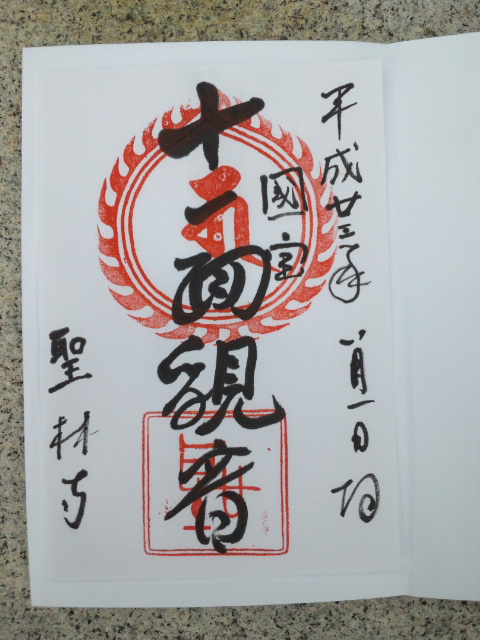 平成廿三年 八月一日 拝
國宝
十一面観音
聖林寺